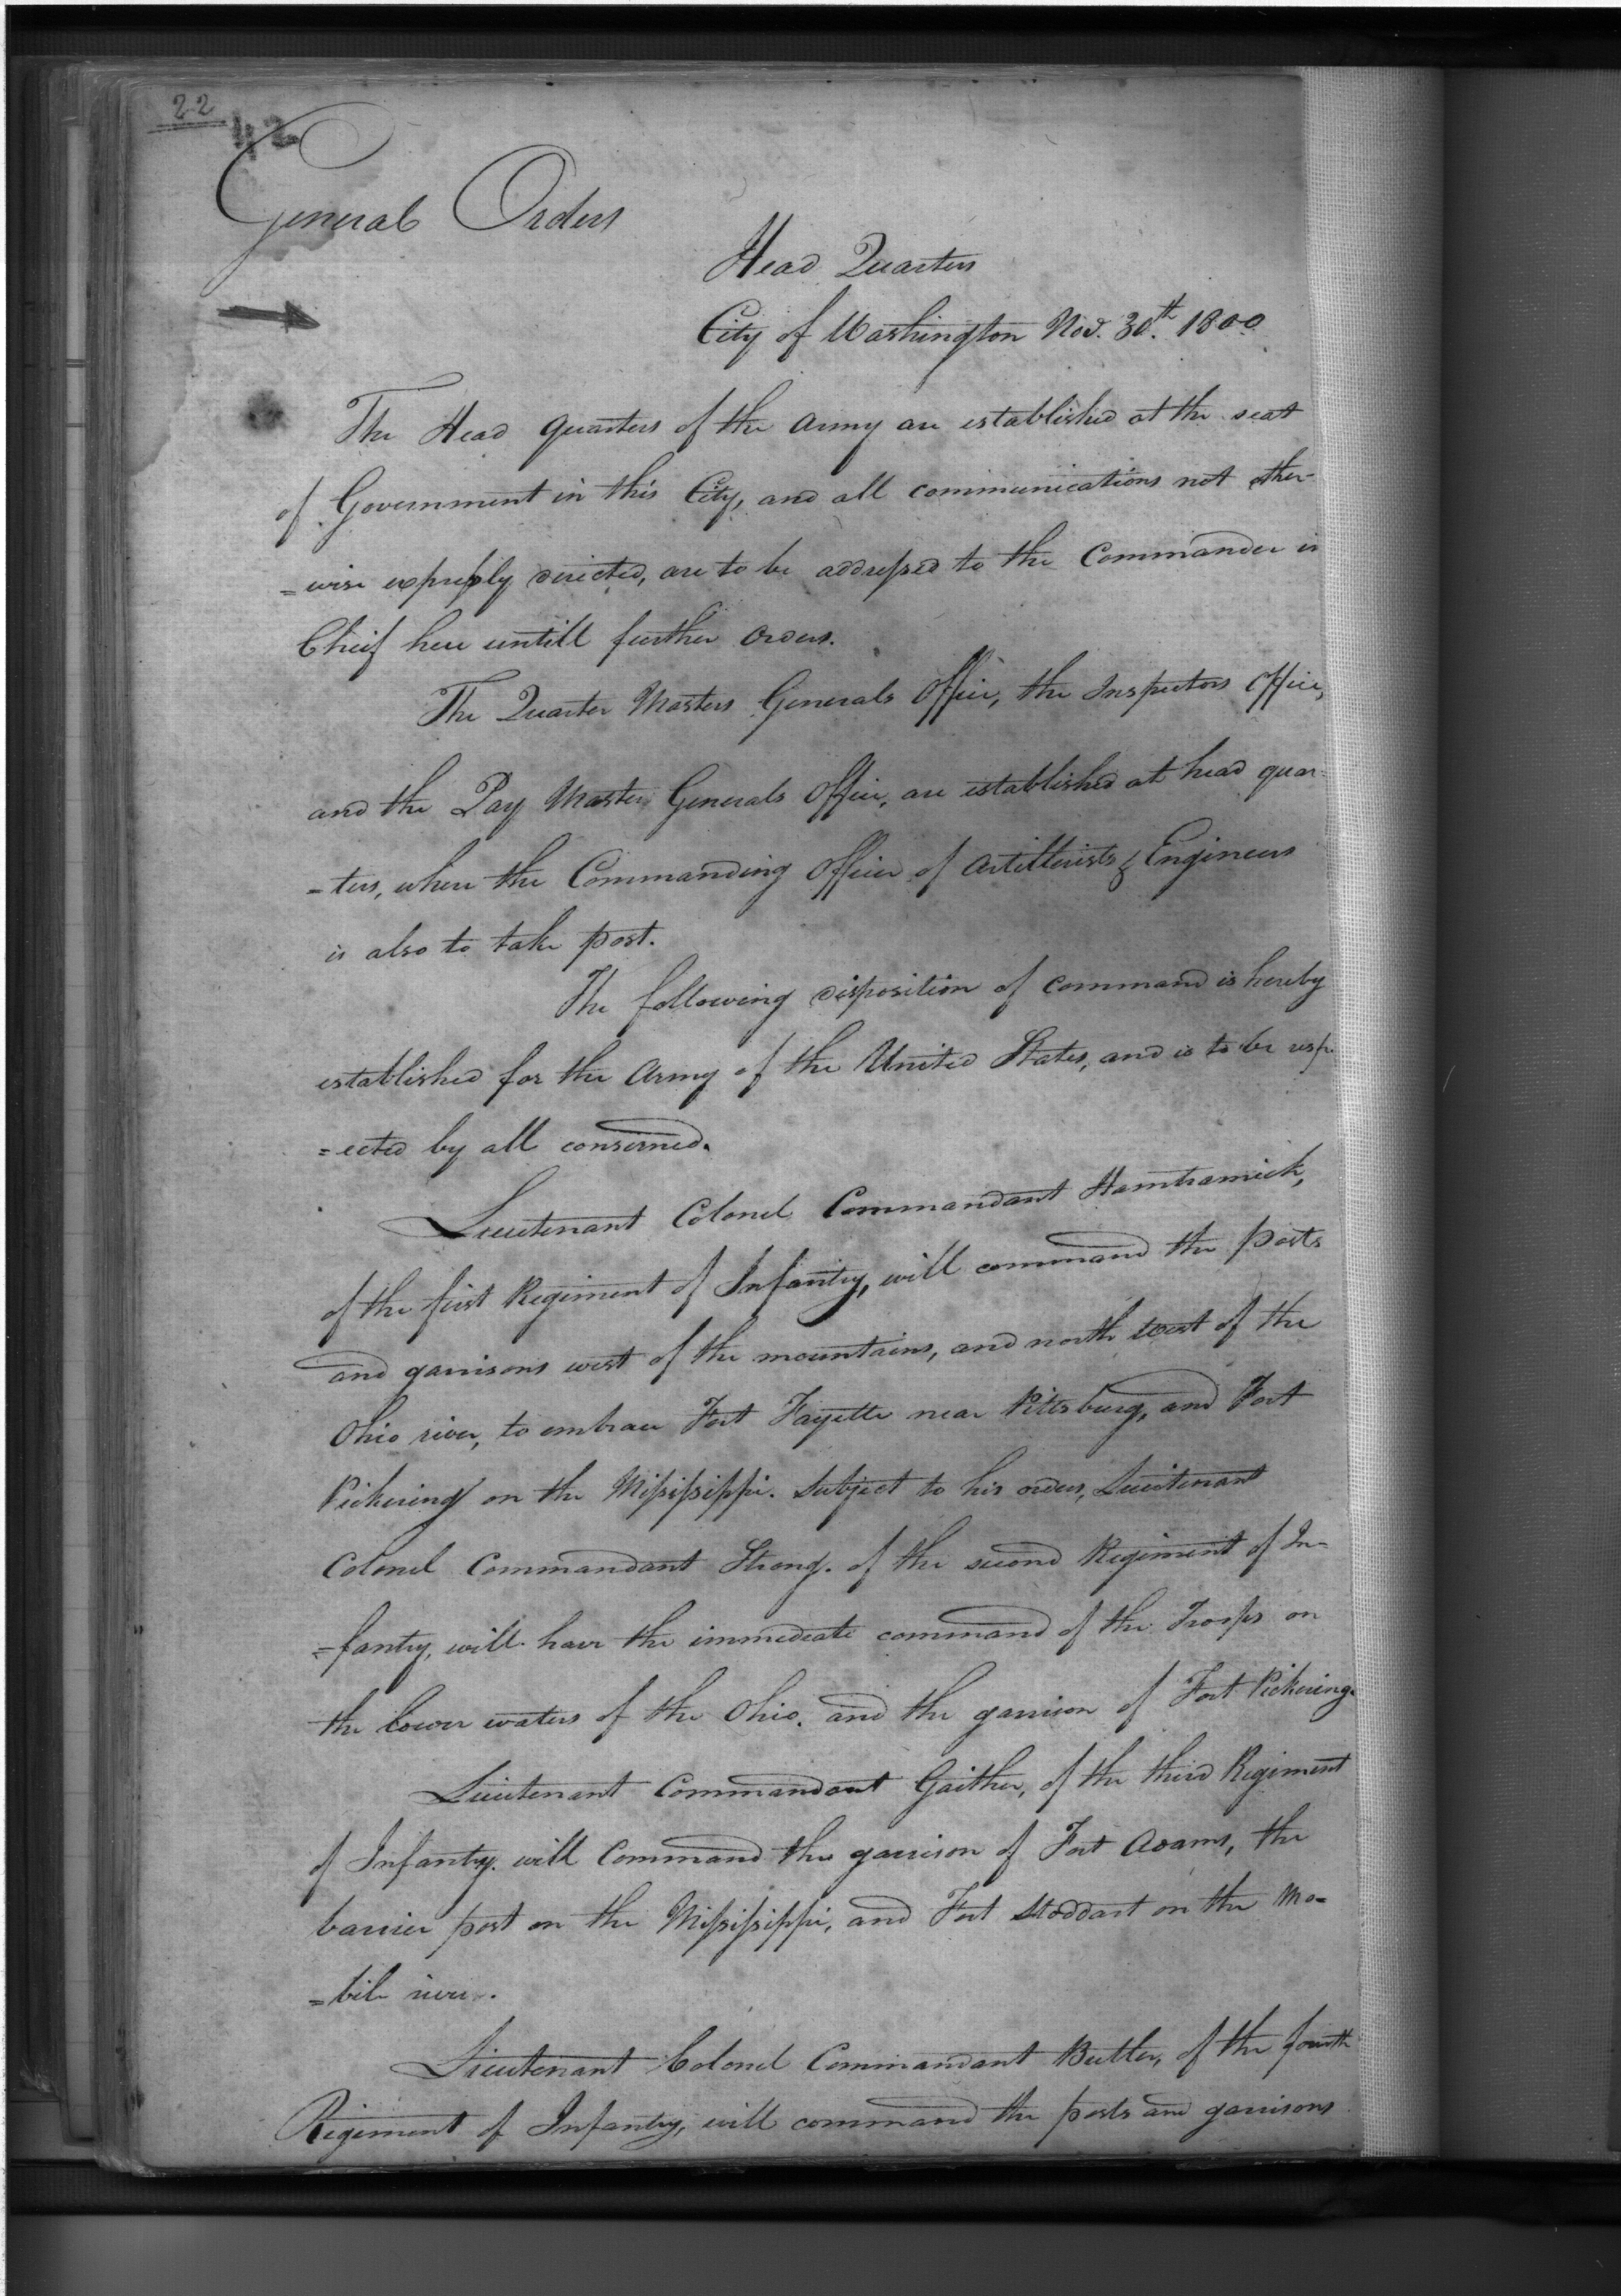 22
General Orders
Head Quarters
City of Washington Nov. 30th. 1800
The Head quarters of the Army are established at the seat
of Government in this City, and all communications not other-
=wise expressly directed, are to be addressed to the Commander in
Cheif here untill further Orders.
The Quarter Masters Generals Office, the Inspectors Office,
and the Pay Masters Generals Office, are established at head quar-
=ters, where the Commanding Officer of Artillerists & Engineers
is also to take post.
The following disposition of command is hereby
established for the Army of the United States, and is to be resp
=ected by all conserned.
Lieutenant Colonel Commandant Hamtramick,
of the first Regiment of Infantry, will command the posts
and garrisons west of the mountains, and north west of the
Ohio river, to embrace Fort Fayette near Pittsburg, and Fort
Pickering on the Mississippi. Subject to his orders, Lieutenant
Colonel Commandant Strong. of the second Regiment of In-
=fantry, will have the immediate command of the Troops on
the lower waters of the Ohio. and the garrison of Fort Pickering.
Lieutenant Commandant Gaither, of the third Regiment
of Infantry. will Command the garrison of Fort Adams, the
barrier post on the Mississippi, and Fort Stoddart on the Mo-
=bile river.
Lieutenant Colonel Commandant Butler, of the fourth
Regiment of Infantry, will command the posts and garrisons